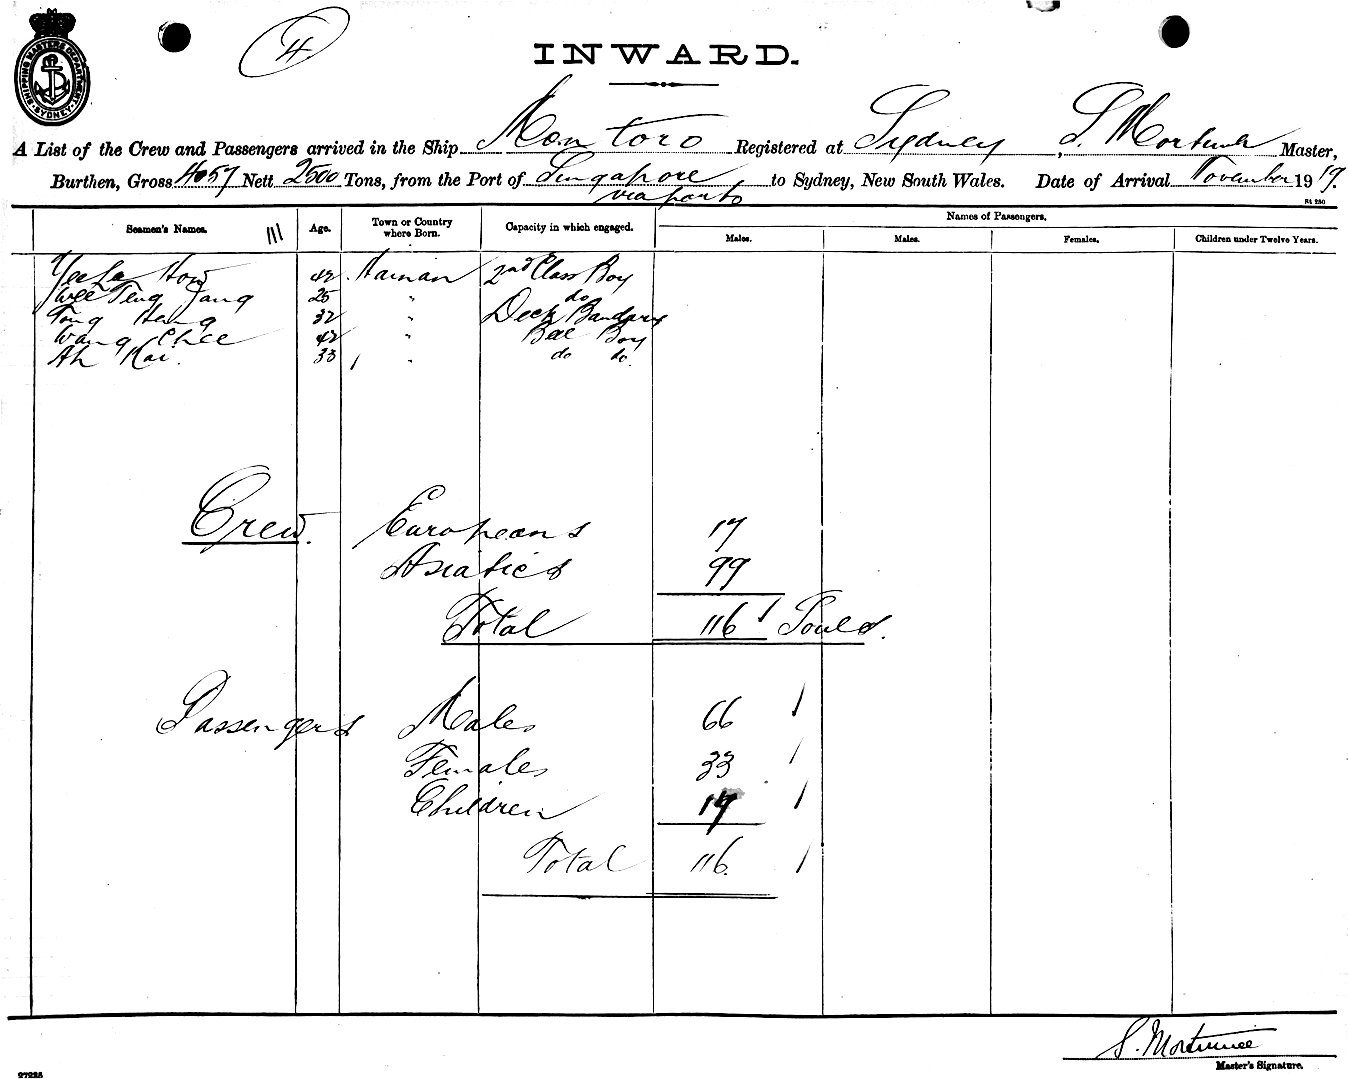 SHIPPING MASTERS DEPARTMENT
SYDNEY
4
INWARD.
A List of the Crew and Passengers arrived in the Ship Montoro Registered at Sydney, S. Mortimer Master,
Burthen, Gross 4057 Nett 2500 Tons, from the Port of Singapore to Sydney, New South Wales. Date of Arrival November 1919.
via ports
Seamen's Names. Age. Town or Country where Born. Capacity in which engaged. Names of Passengers.
Males. Males. Females. Children under Twelve Years.
How 42 Hainan 2nd Class Boy
Teng 25 " do
Tong Heng 32 " Deck Bandary
Wang Chee 42 " Boy
Ah Kai. 33 " do do.
Crew. Europeans 17
Asiatics 99
Total 116 Souls.
Passengers Males 66
Females 33
Children 17
Total 116.
S. Mortimer
Master's Signature.
27235